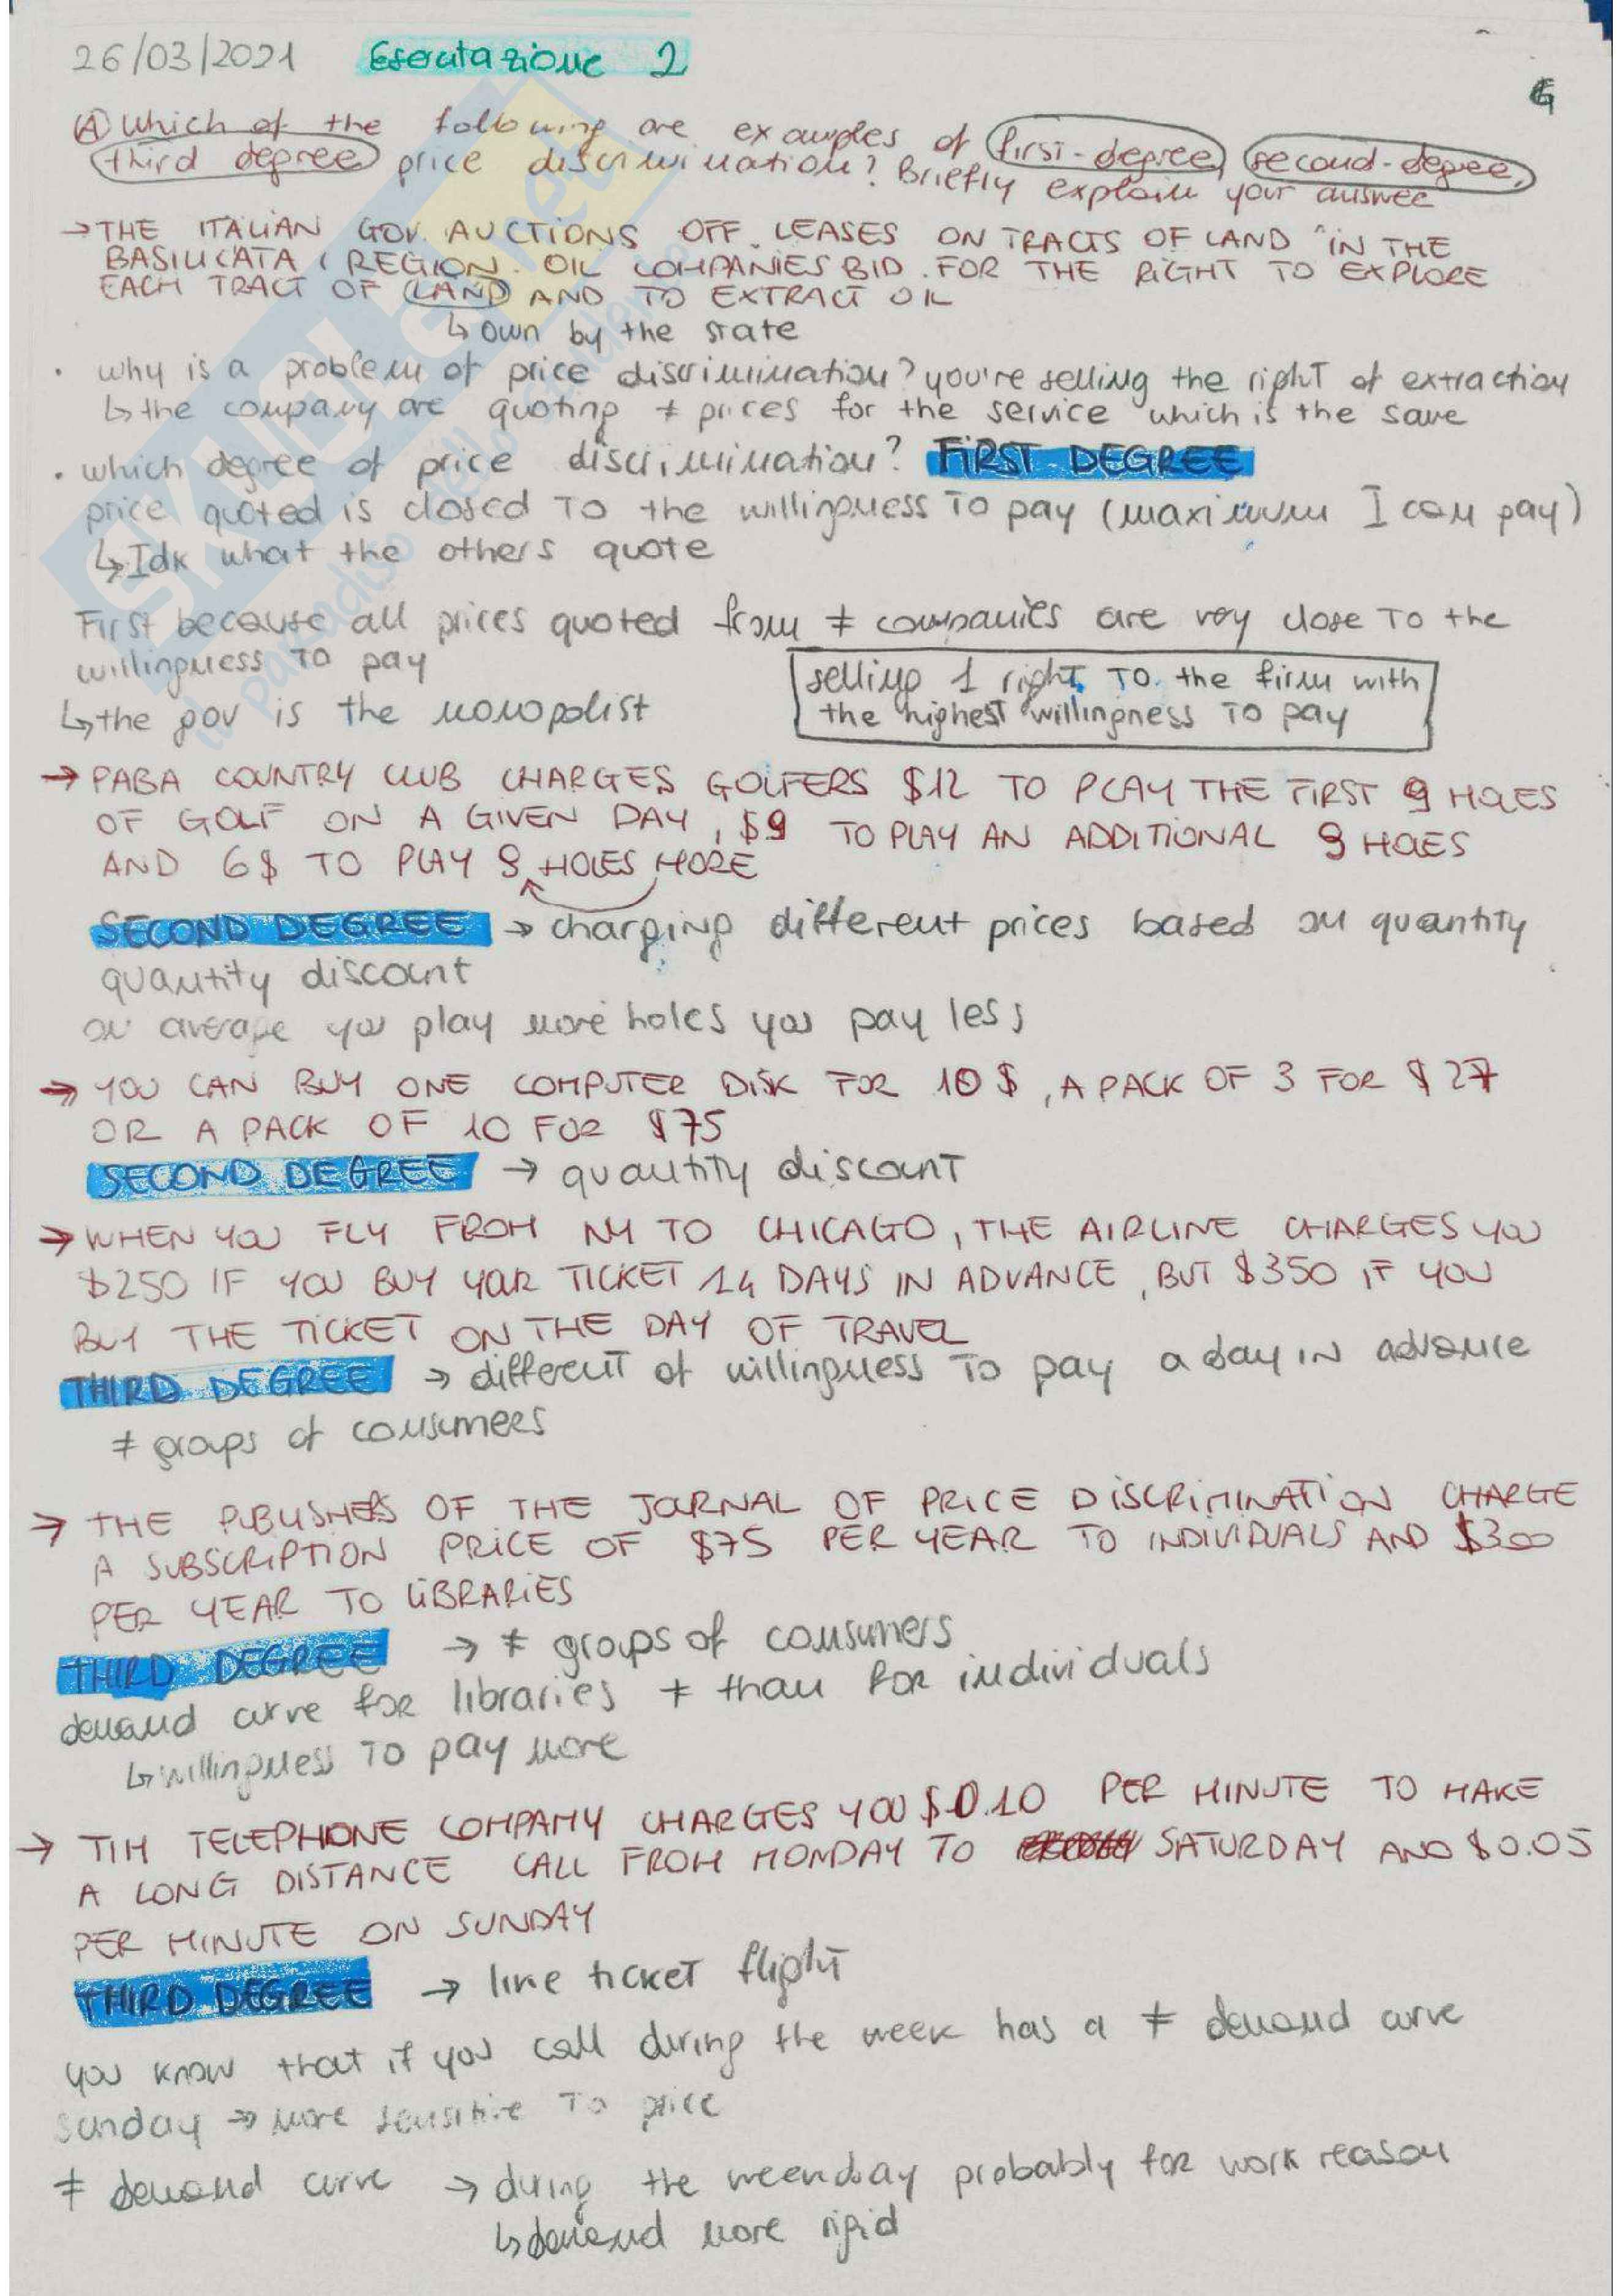 26/03/2021 Esercitazione 2
G
(A) Which of the following are examples of first-degree, second-degree,
third degree price discrimination? Briefly explain your answer
→ THE ITALIAN GOV. AUCTIONS OFF LEASES ON TRACTS OF LAND IN THE
BASILICATA REGION. OIL COMPANIES BID FOR THE RIGHT TO EXPLORE
EACH TRACT OF LAND AND TO EXTRACT OIL
↳ own by the state
• why is a problem of price discrimination? you're selling the right of extraction
↳ the company are quoting ≠ prices for the service which is the same
• which degree of price discrimination? FIRST DEGREE
price quoted is closed to the willingness to pay (maximum I can pay)
↳ Idk what the others quote
First because all prices quoted from ≠ companies are very close to the
willingness to pay
selling 1 right to the firm with
the highest willingness to pay
↳ the gov is the monopolist
→ PABA COUNTRY CLUB CHARGES GOLFERS $12 TO PLAY THE FIRST 9 HOLES
OF GOLF ON A GIVEN DAY, $9 TO PLAY AN ADDITIONAL 9 HOLES
AND 6$ TO PLAY 9 HOLES MORE
SECOND DEGREE → charging different prices based on quantity
quantity discount
on average you play more holes you pay less
→ YOU CAN BUY ONE COMPUTER DISK FOR 10$, A PACK OF 3 FOR $27
OR A PACK OF 10 FOR $75
SECOND DEGREE → quantity discount
→ WHEN YOU FLY FROM NY TO CHICAGO, THE AIRLINE CHARGES YOU
$250 IF YOU BUY YOUR TICKET 14 DAYS IN ADVANCE, BUT $350 IF YOU
BUY THE TICKET ON THE DAY OF TRAVEL
THIRD DEGREE → different of willingness to pay a day in advance
≠ groups of consumers
→ THE PUBLISHERS OF THE JOURNAL OF PRICE DISCRIMINATION CHARGE
A SUBSCRIPTION PRICE OF $75 PER YEAR TO INDIVIDUALS AND $300
PER YEAR TO LIBRARIES
THIRD DEGREE → ≠ groups of consumers
demand curve for libraries ≠ than for individuals
↳ willingness to pay more
→ TIM TELEPHONE COMPANY CHARGES YOU $0.10 PER MINUTE TO MAKE
A LONG DISTANCE CALL FROM MONDAY TO SATURDAY AND $0.05
PER MINUTE ON SUNDAY
THIRD DEGREE → like ticket flight
you know that if you call during the week has a ≠ demand curve
sunday → more sensitive to price
≠ demand curve → during the weekday probably for work reason
↳ demand more rigid